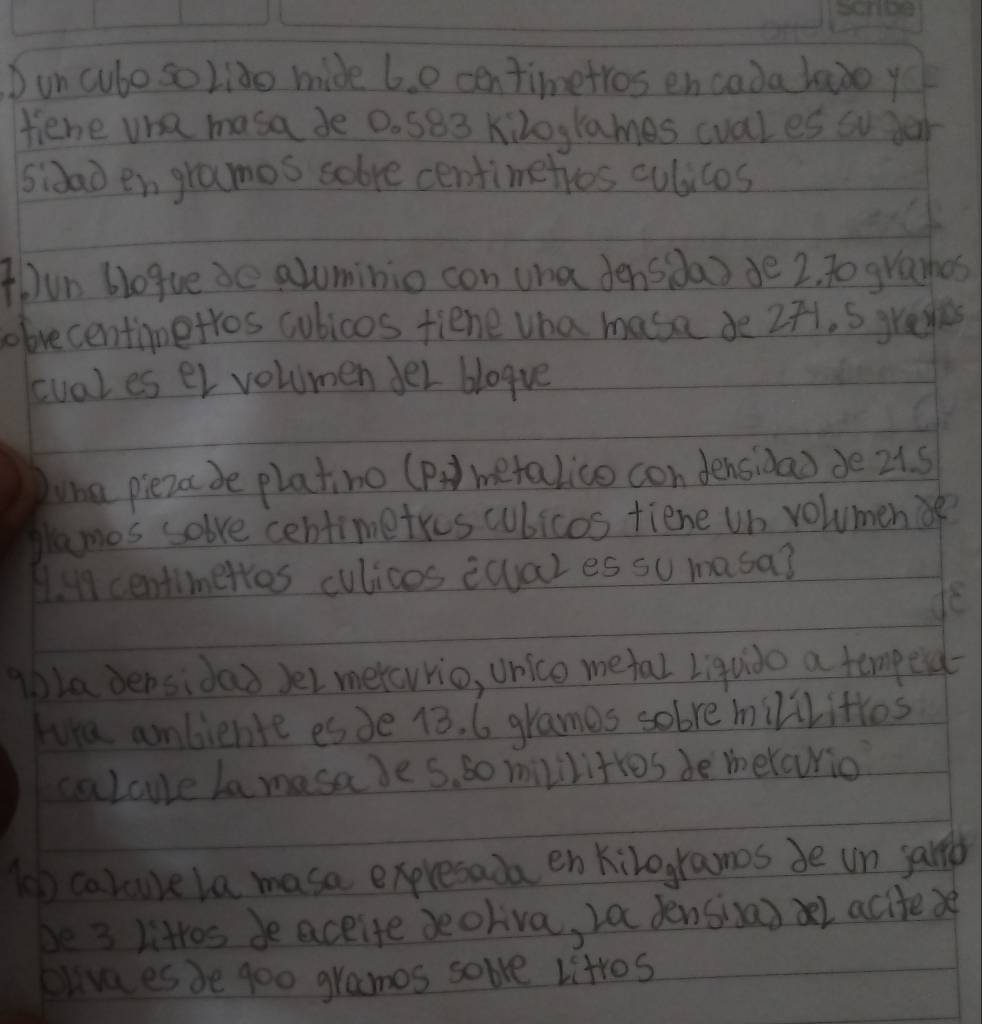 Scribe
) un cubo solido mide 6.0 centimetros en cada lado y
tiene una masa de 0.583 Kilogramos cual es su den
sidad en gramos sobre centimetros cubicos
7.) un bloque de aluminio con una densidad de 2.70 gramos
sobre centimetros cubicos tiene una masa de 271.5 gramos
cual es el volumen del bloque
) una pieza de platino (Pt) metalico con densidad de 21.5
gramos sobre centimetros cubicos tiene un volumen de
4.49 centimetros culicos ¿cual es su masa?
9.) La densidad del mercurio, unico metal Liquido a tempera-
tura ambiente es de 13.6 gramos sobre mililitros
calcule La masa de 5.50 mililitros de mercurio
10) calcule la masa expresada en Kilogramos de un jarro
de 3 litros de aceite de oliva, la densidad del acite de
oliva es de 900 gramos sobre Litros